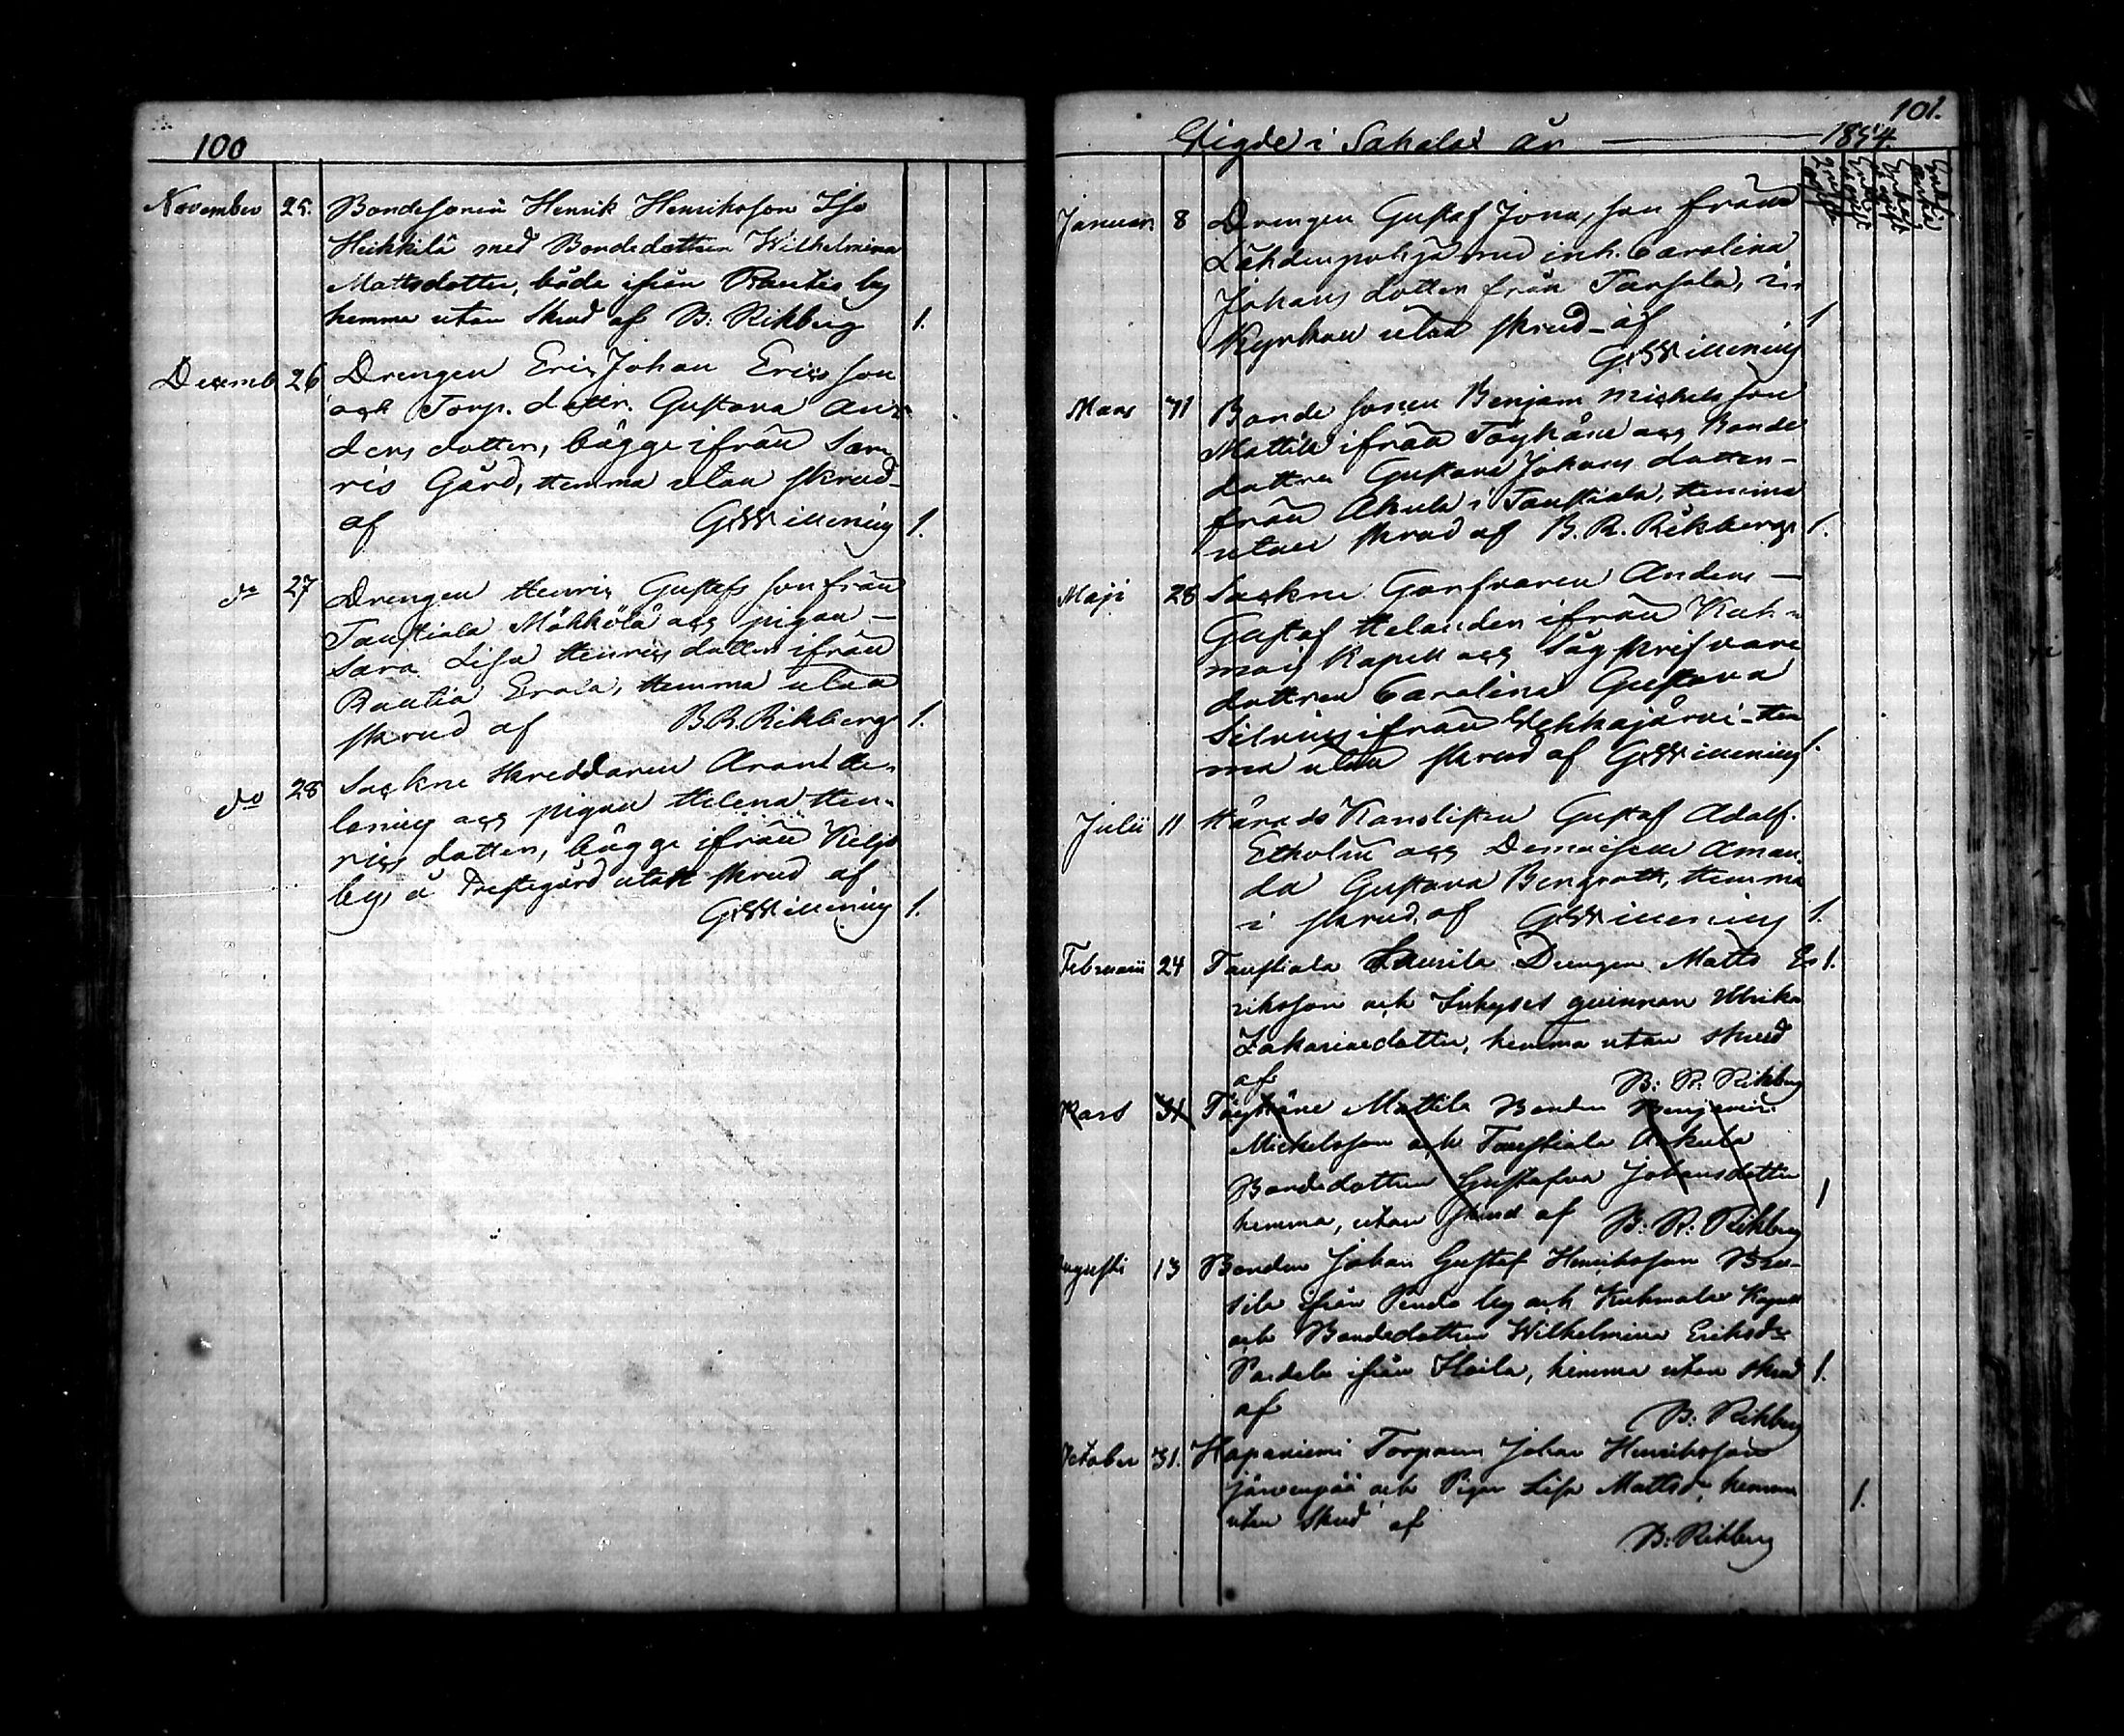 100
November 25. Bondesonen Henrik Henriksson Iso
Heikkilä med Bondedottren Wilhelmina
Mattsdotter, både ifrån Rautis by
hemma utan Skrud af B: Rikberg 1.
Decemb 26 Drengen Eric Johan Ericsson
och Torp. dottr. Gustava An
ders dotter, bägge ifrån Saa
ris Gård, Hemma utan skrud
af G. W. Willening 1.
do 27 Drengen Henric Gustafs son från
Taustiala Möhkölä och pigan
Sara Lisa Henrics dotter ifrån
Rautia Erola, Hemma utan
skrud af B. R. Rikberg 1.
do 28 Sockne Skreddaren
och pigan Helena Hen
rics dotter, bägge ifrån Keljo
by, å Prestegård utan skrud af
G. W. Willening 1.
101.
Vigde i Sahalax År 1854
Januari 8 Drengen Gustaf Jonas son från
Lähdenpohja med inh. Carolina
Johans dotter från Tarsala, i
Kyrkan utan skrud af 1
G. W. Willening
Mars 31 Bonde sonen Benjam Michels son
Mattila ifrån Töyhäne och Bonde
dottren Gustava Johans dotter
från Akula i Taustiala, Hemma
utan skrud af B. R. Rikberg 1.
Maji 28 Sockne Garfvaren Anders
Gustaf Helander ifrån Kuh
mois Kapell och Sågskrifvare
dottren Carolina Gustava
Silvius ifrån Vehkajärvi Hem
ma utan skrud af G. W. Willening 1.
Julii 11 Härads Kanslisten Gustaf Adolf
Etholén och Demoiselle Aman
da Gustava Bergroth, Hemma
i skrud, af G. W. Willening 1.
Februarii 24 Taustiala Laurila Drengen Matts E 1.
riksson och Inhyses qvinnan Ulrika
Zakariasdotter, hemma utan skrud
af B: R. Rikberg
Mars 31 Töyhäne Mattila Bonden Benjamin
Michelsson och Taustiala Ankula
Bondedottren Gustafva Johansdotter 1
hemma, utan skrud af B: R: Rikberg
Augusti 13 Bonden Johan Gustaf Henriksson
sila ifrån by och Kuhmalax Kapell
och Bondedottren Wilhelmina Eriksdr
ifrån Haila, hemma utan skrud 1.
af B: Rikberg
October 31. Hapaniemi Torparen Johan Henriksson
Järvenpää och Pigan Lisa Mattsd. hemma 1.
utan Skrud af
B: Rikberg